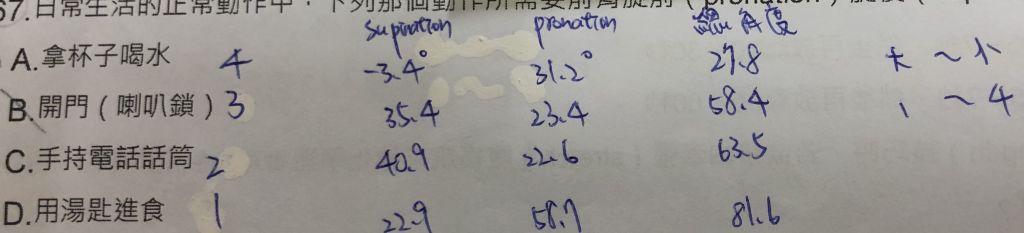 67.日常生活的正常動作中，下列那個動作所需要前臂旋前（pronation）旋
supination pronation 總角度
A.拿杯子喝水 4 -3.4° 31.2° 27.8 大~小
B.開門（喇叭鎖）3 35.4 23.4 58.4 1~4
C.手持電話話筒 2 40.9 22.6 63.5
D.用湯匙進食 1 22.9 58.7 81.6